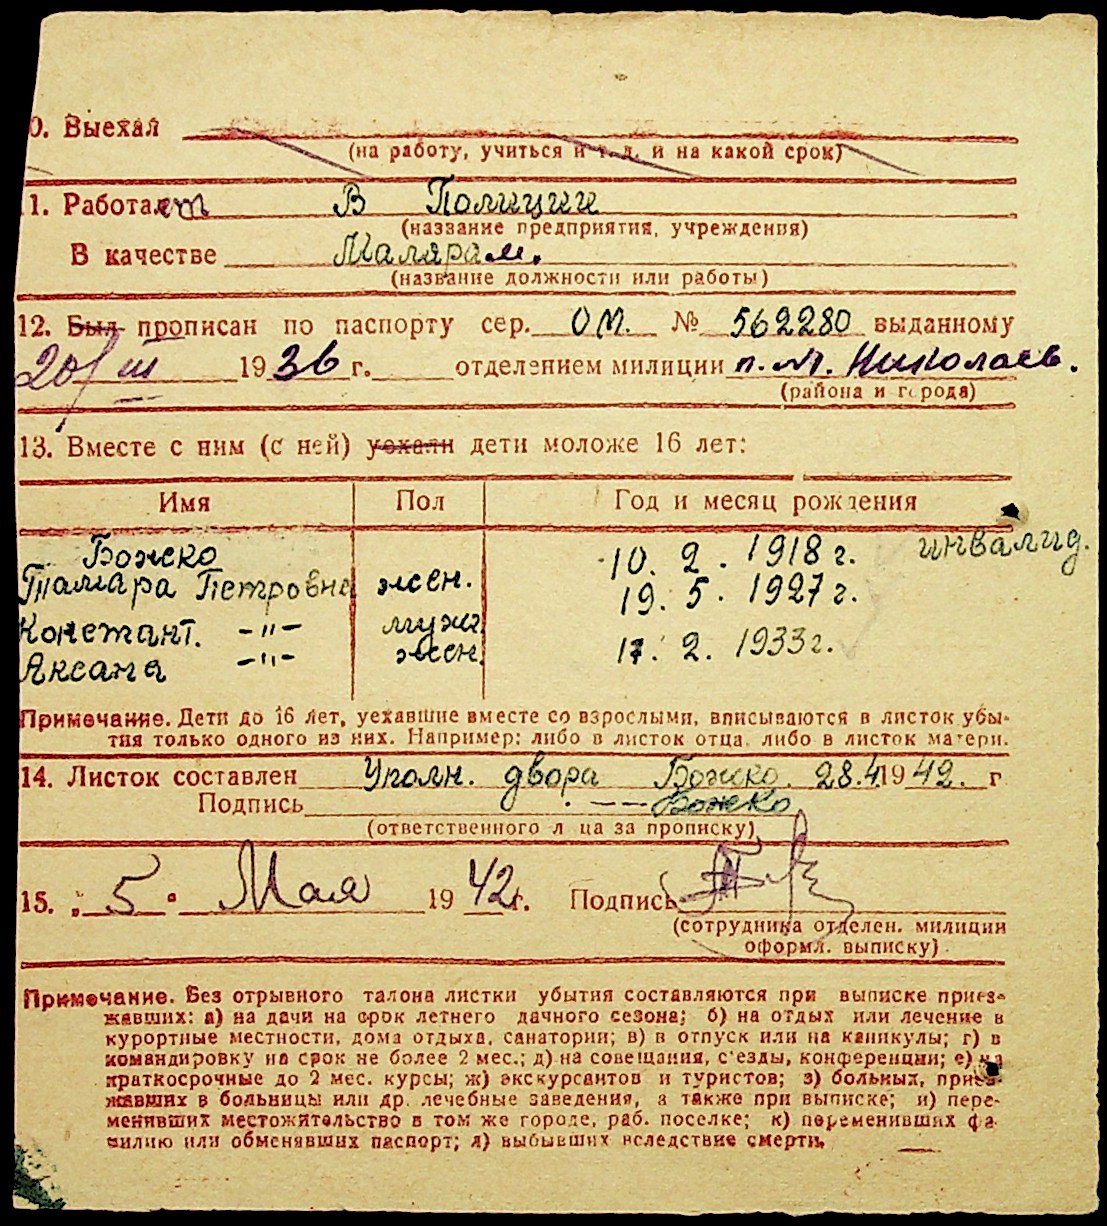 0. Выехал
(на работу, учиться и т. д. и на какой срок)
11. Работает В Полиции
(название предприятия, учреждения)
В качестве Маляром.
(название должности или работы)
12. Был прописан по паспорту сер. ОМ. № 562280 выданному
20/III 1936 г. отделением милиции п. М. Николаев.
(района и города)
13. Вместе с ним (с ней) уехали дети моложе 16 лет:
Имя Пол Год и месяц рождения
Божско 10. 2. 1918 г. инвалид.
Тамара Петровна жен. 19. 5. 1927 г.
Констант. -"- муж. 17. 2. 1933 г.
Аксана -"- жен.
Примечание. Дети до 16 лет, уехавшие вместе со взрослыми, вписываются в листок убы-
тия только одного из них. Например: либо в листок отца, либо в листок матери.
14. Листок составлен Уполн. двора Божко. 28.4.1942. г
Подпись Божко
(ответственного лица за прописку)
15. "5" Мая 1942 г. Подпись
(сотрудника отделен. милиции
оформл. выписку)
Примечание. Без отрывного талона листки убытия составляются при выписке приез-
жавших: а) на дачи на срок летнего дачного сезона; б) на отдых или лечение в
курортные местности, дома отдыха, санатории; в) в отпуск или на каникулы; г) в
командировку на срок не более 2 мес.; д) на совещания, с'езды, конференции; е) на
краткосрочные до 2 мес. курсы; ж) экскурсантов и туристов; з) больных, приез-
жавших в больницы или др. лечебные заведения, а также при выписке; и) пере-
менивших местожительство в том же городе, раб. поселке; к) переменивших фа-
милию или обменявших паспорт; л) выбывших вследствие смерти.